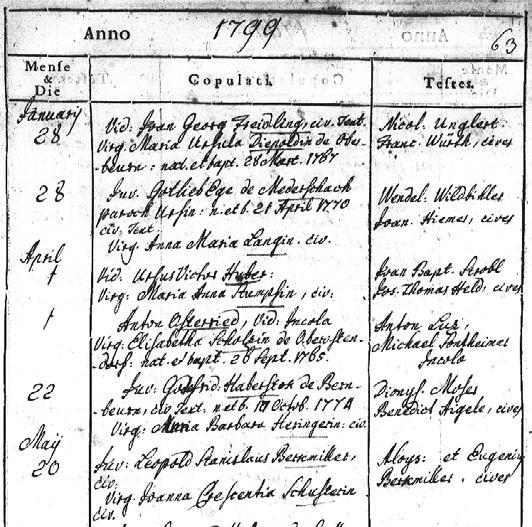 Anno 1799
63
Mense
&
Die
Copulati.
Testes.
January
28
Vid: Joan Georg Freidling, civ. Text.
Virg: Maria Ursula Diepoldin de Ober-
-beurn: nat. et bapt. 28 Mart. 1767
Nicol. Unglert.
Franc. Würth, cives
28
Juv. Gottlieb Ege de
paroch Ursin: n: et b. 21 April 1770
civ. Text
Virg: Anna Maria Langin. civ.
Wendel: Wildbihler
Joan. Hiemer, cives
April
1
Vid: Ursus Victor Huber:
Virg: Maria Anna Stumpfin, civ:
Joan Bapt. Strobl
Jos. Thomas Held: cives
1
Anton Osterried, Vid: Incola
Virg: Elisabetha de Oberosten-
dorf: nat. et bapt. 26 Sept. 1765.
Anton Luz,
Michael Sontheimer
Incola
22
Juv: Haberstok de Bern-
-beurn, civ Text: n: et b. 19 Octob. 1774
Virg: Maria Barbara Heringerin: civ.
Dionys. Moser
Benedict Aigele, cives
Maÿ
20
Juv: Leopold Stanislaus Berkmiller,
civ:
Virg: Joanna Crescentia Schusterin
civ.
Aloys: et Eugeniy
Berkmiller. cives